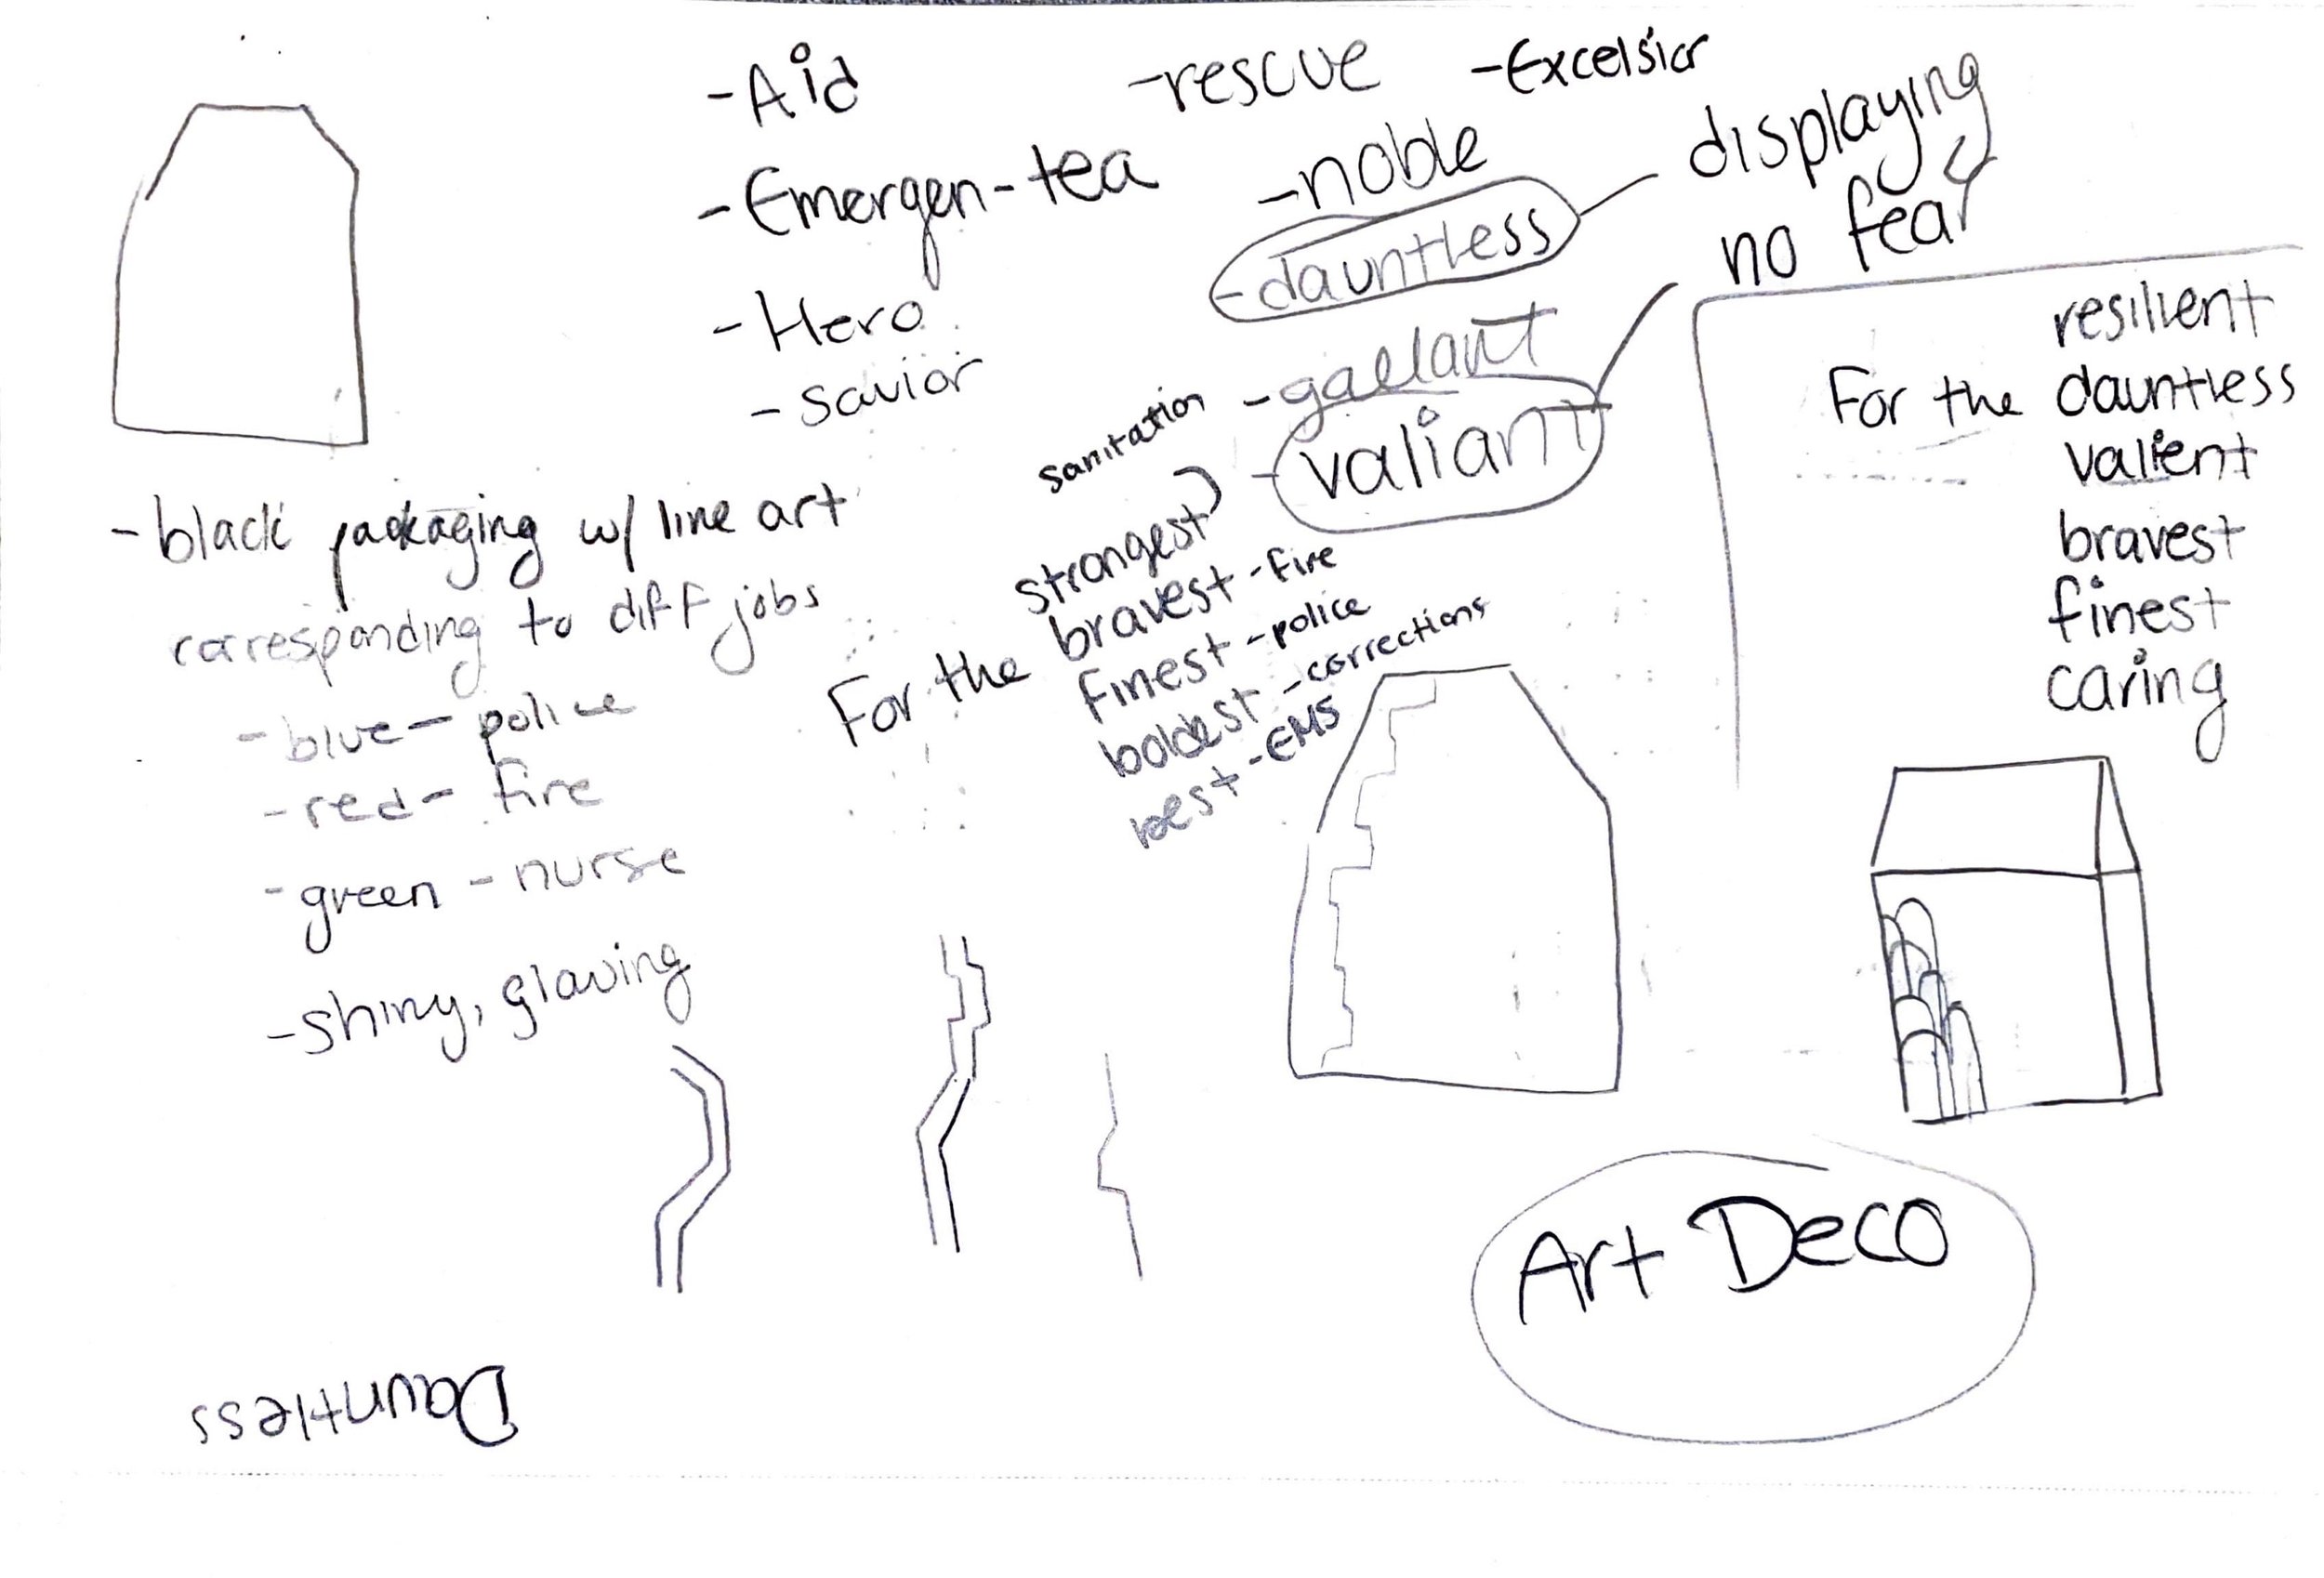 -Aid
-rescue
-Excelsior
-Emergen-tea
-noble
-dauntless
displaying
no fear
-Hero
-savior
-gallant
-valiant
resilient
For the dauntless
valient
bravest
finest
caring
-black packaging w/ line art
corresponding to diff jobs
-blue - police
-red - fire
-green - nurse
-shiny, glowing
sanitation
strongest
For the bravest - fire
finest - police
boldest - corrections
best - EMS
Art Deco
Dauntless